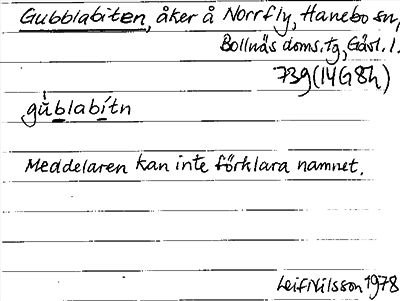 Gubblabiten, åker å Norrfly, Hanebo sn,
Bollnäs doms.tg, Gävl. l.
73g (14G 8h)
gùblabítn
Meddelaren kan inte förklara namnet.
Leif Nilsson 1978